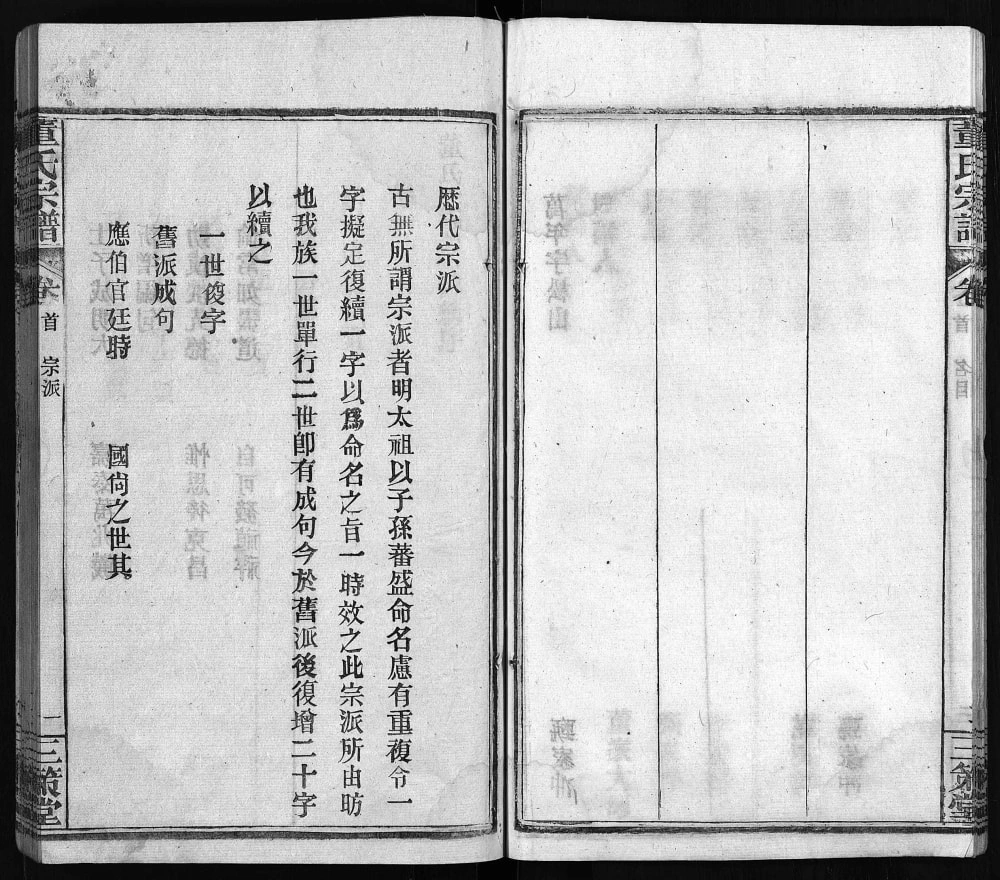 董氏宗譜
卷
首
名目
三策堂
歷代宗派
古無所謂宗派者明太祖以子孫蕃盛命名慮有重複令一
字擬定復續一字以爲命名之旨一時效之此宗派所由昉
也我族一世單行二世卽有成句今於舊派後復增二十字
以續之
一世俊字
舊派成句
應伯官廷時 國尙之世其
董氏宗譜
卷
首
宗派
一
三策堂